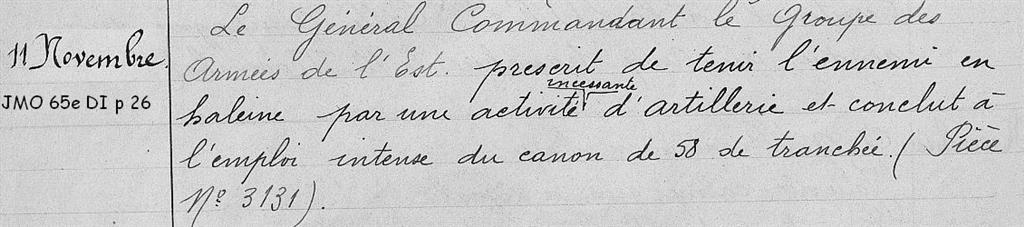 11 Novembre.
JMO 65e DI p 26
Le Général Commandant le Groupe des
Armées de l'Est. prescrit de tenir l'ennemi en
haleine par une activité incessante d'artillerie et conclut à
l'emploi intense du canon de 58 de tranchée. (Pièce
No 3131).